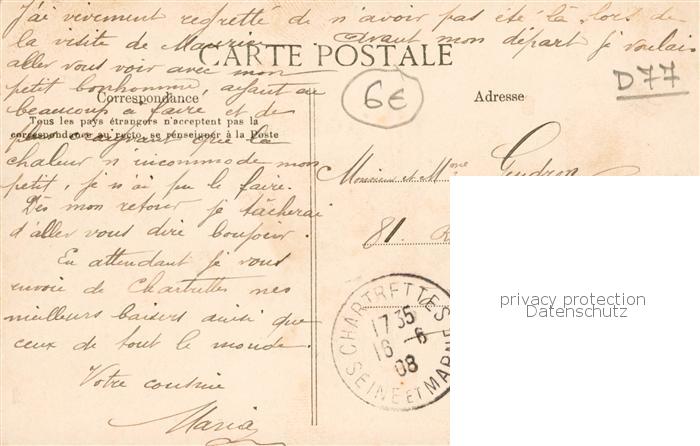 J'ai vivement regretté de n'avoir pas été là, lors de
la visite de Maurice. Avant mon départ je voulais
CARTE POSTALE
aller vous voir avec mon
petit bonhomme, ayant eu
Correspondance
beaucoup à faire et de
Tous les pays étrangers n'acceptent pas la
correspondance au recto, se renseigner à la Poste
plus craignant que la
chaleur n'incommode mon
petit, je n'ai pu le faire.
Dès mon retour je tâcherai
d'aller vous dire bonjour.
En attendant je vous
envoie de Chartrettes nos
meilleurs baisers ainsi que
ceux de tout le monde.
Votre cousine
Maria
6€
D77
Adresse
Monsieur et Mme Gendron
81
CHARTRETTES
17 35
16 -6
08
SEINE ET MARNE
privacy protection
Datenschutz